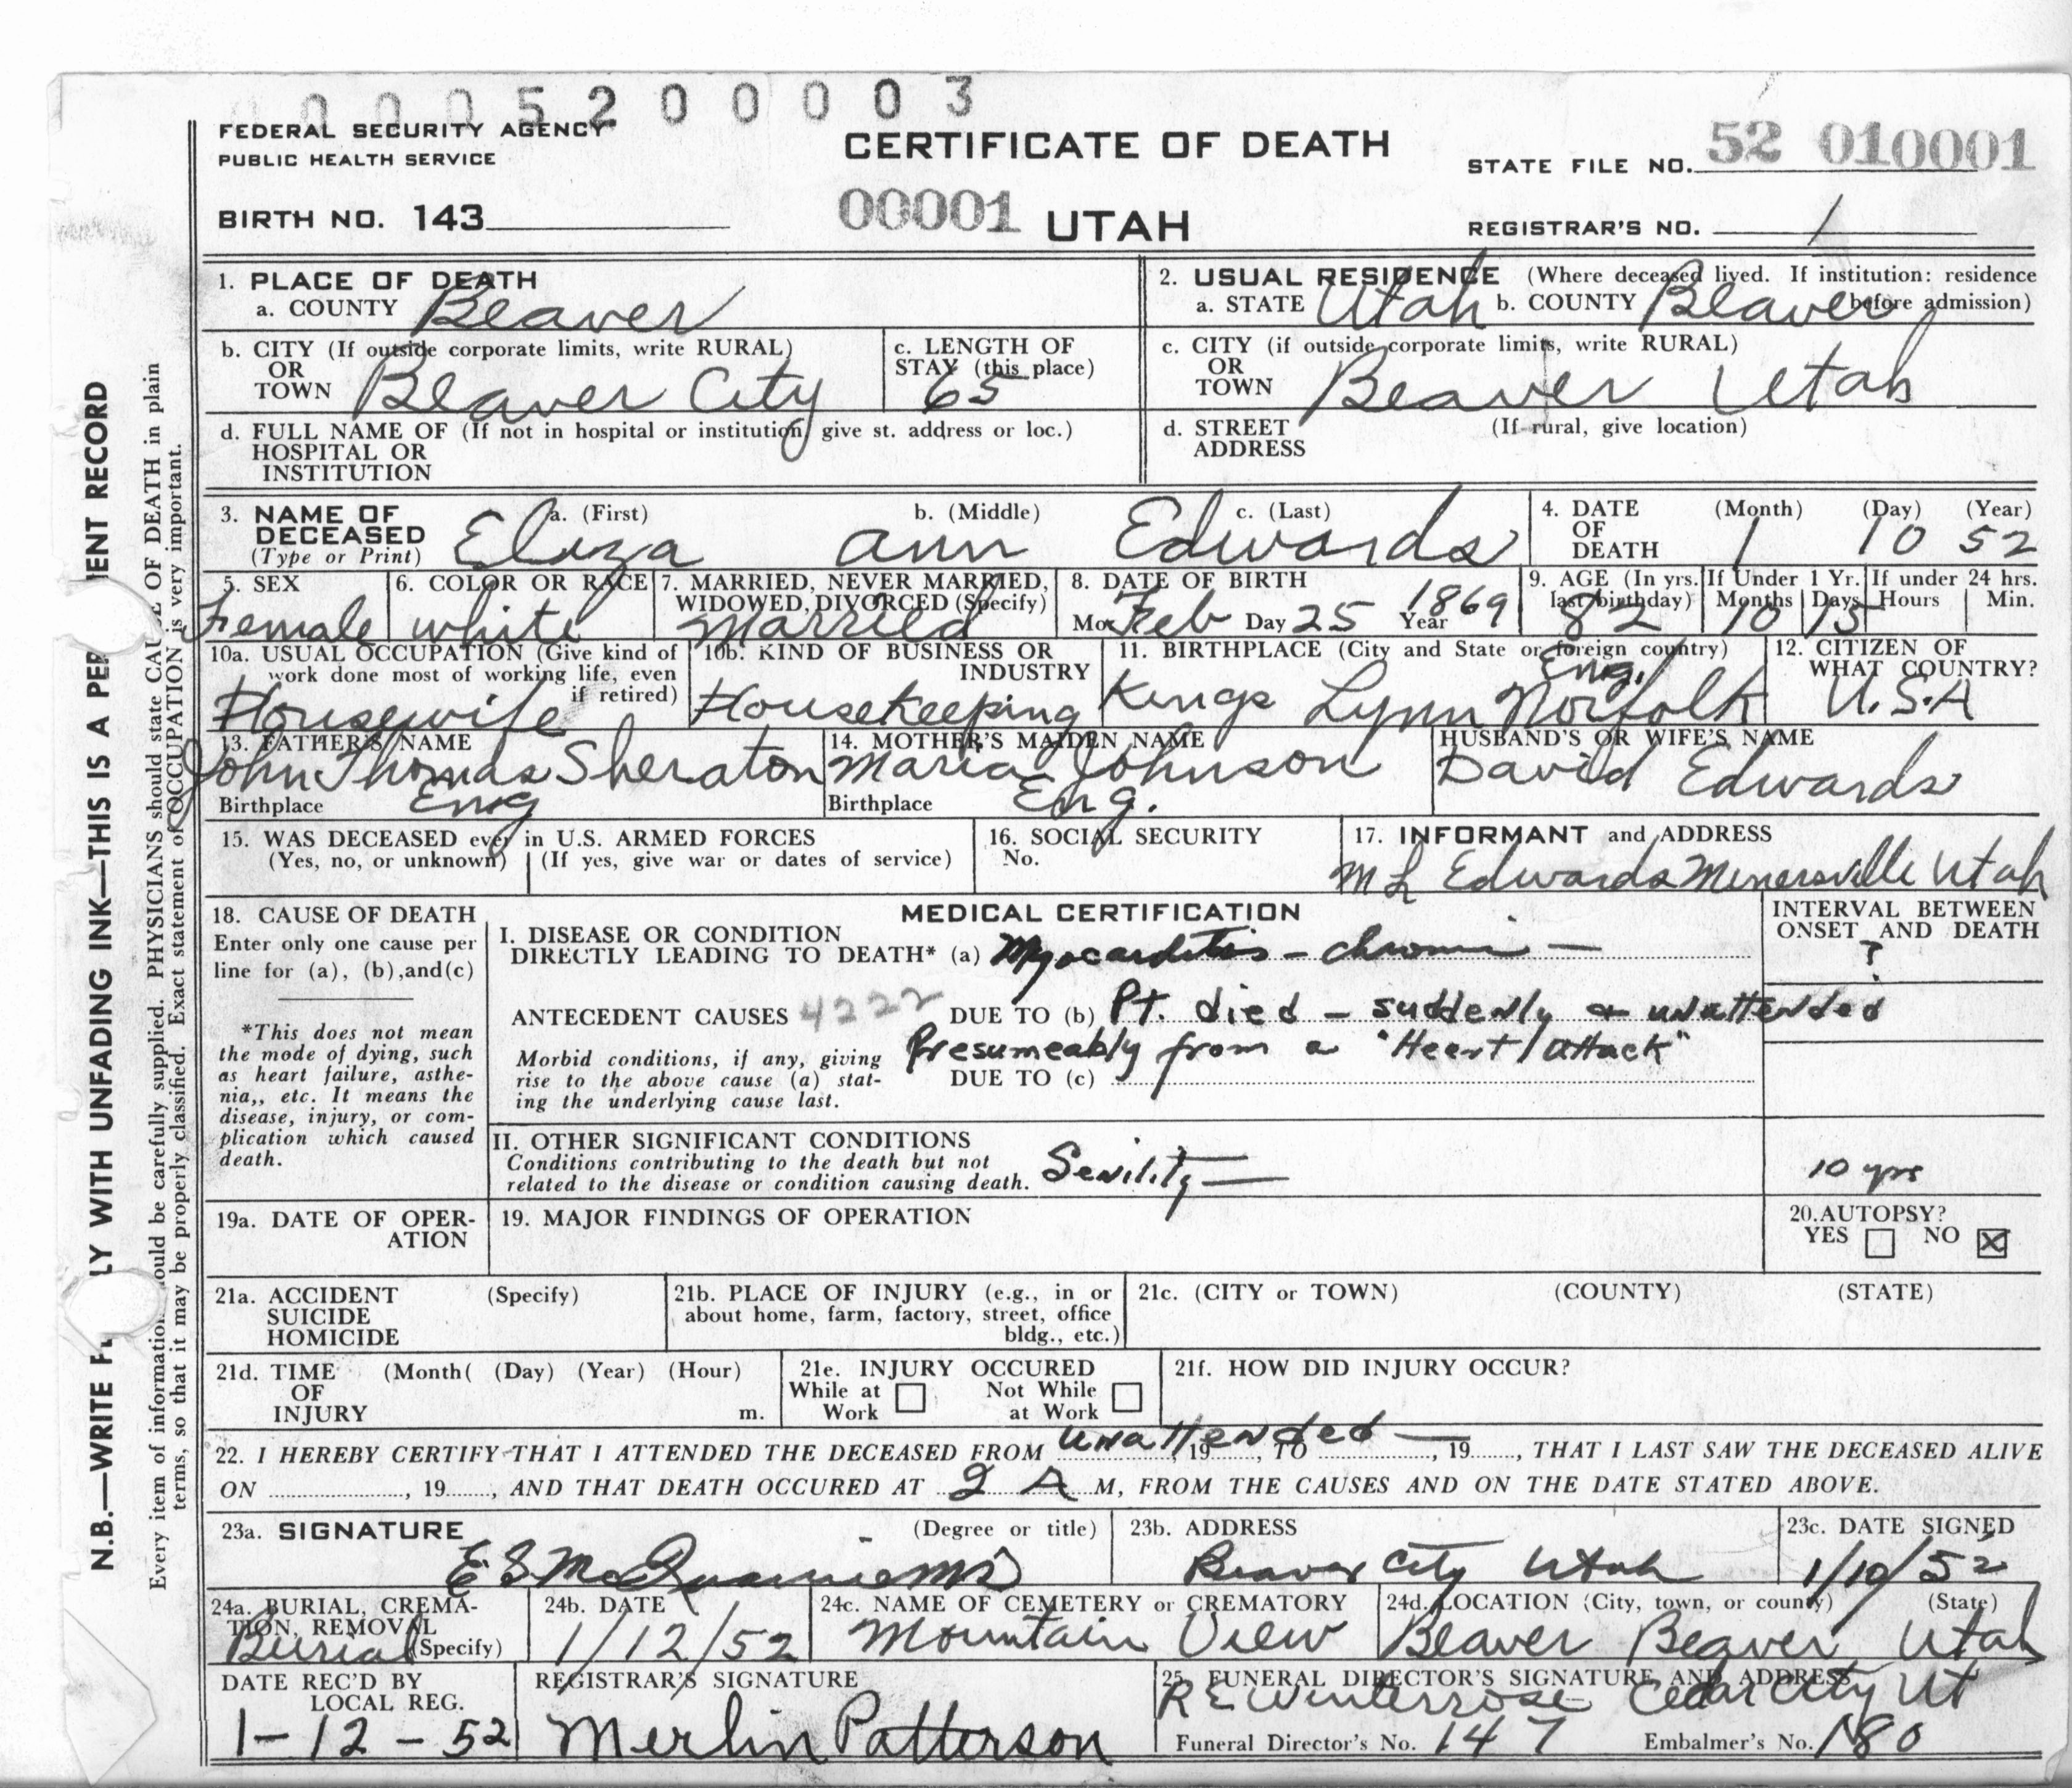 0000520000 3
FEDERAL SECURITY AGENCY
PUBLIC HEALTH SERVICE
CERTIFICATE OF DEATH
STATE FILE NO. 52 010001
BIRTH NO. 143
00001 UTAH
REGISTRAR'S NO. 1
1. PLACE OF DEATH
a. COUNTY Beaver
2. USUAL RESIDENCE (Where deceased lived. If institution: residence
a. STATE Utah b. COUNTY Beaver before admission)
b. CITY (If outside corporate limits, write RURAL)
OR
TOWN Beaver City
c. LENGTH OF
STAY (this place)
65
c. CITY (if outside corporate limits, write RURAL)
OR
TOWN Beaver Utah
d. FULL NAME OF (If not in hospital or institution, give st. address or loc.)
HOSPITAL OR
INSTITUTION
d. STREET (If rural, give location)
ADDRESS
3. NAME OF DECEASED
(Type or Print)
a. (First) b. (Middle) c. (Last)
Eliza Ann Edwards
4. DATE OF DEATH
(Month) (Day) (Year)
1 10 52
5. SEX
Female
6. COLOR OR RACE
white
7. MARRIED, NEVER MARRIED,
WIDOWED, DIVORCED (Specify)
Married
8. DATE OF BIRTH
Mo. Feb Day 25 Year 1869
9. AGE (In yrs. last birthday)
82
If Under 1 Yr.
Months Days
10 15
If under 24 hrs.
Hours Min.
10a. USUAL OCCUPATION (Give kind of
work done most of working life, even
if retired)
Housewife
10b. KIND OF BUSINESS OR
INDUSTRY
Housekeeping
11. BIRTHPLACE (City and State or foreign country)
Kings Lynn Norfolk Eng.
12. CITIZEN OF
WHAT COUNTRY?
U.S.A
13. FATHER'S NAME
John Thomas Sheraton
Birthplace Eng
14. MOTHER'S MAIDEN NAME
Maria Johnson
Birthplace Eng.
HUSBAND'S OR WIFE'S NAME
David Edwards
15. WAS DECEASED ever in U.S. ARMED FORCES
(Yes, no, or unknown) (If yes, give war or dates of service)
16. SOCIAL SECURITY
No.
17. INFORMANT and ADDRESS
M L Edwards Minersville Utah
18. CAUSE OF DEATH
Enter only one cause per
line for (a), (b), and(c)
*This does not mean
the mode of dying, such
as heart failure, asthe-
nia,, etc. It means the
disease, injury, or com-
plication which caused
death.
MEDICAL CERTIFICATION
INTERVAL BETWEEN
ONSET AND DEATH
I. DISEASE OR CONDITION
DIRECTLY LEADING TO DEATH* (a) Myocarditis - chronic -
?
ANTECEDENT CAUSES 4222 DUE TO (b) Pt. died - suddenly & unattended
Presumeably from a "Heart attack"
Morbid conditions, if any, giving
rise to the above cause (a) stat-
ing the underlying cause last.
DUE TO (c)
II. OTHER SIGNIFICANT CONDITIONS
Conditions contributing to the death but not
related to the disease or condition causing death.
Senility
10 yrs
19a. DATE OF OPER-
ATION
19. MAJOR FINDINGS OF OPERATION
20. AUTOPSY?
YES NO X
21a. ACCIDENT (Specify)
SUICIDE
HOMICIDE
21b. PLACE OF INJURY (e.g., in or
about home, farm, factory, street, office
bldg., etc.)
21c. (CITY or TOWN) (COUNTY) (STATE)
21d. TIME (Month( (Day) (Year) (Hour)
OF
INJURY m.
21e. INJURY OCCURED
While at Work Not While at Work
21f. HOW DID INJURY OCCUR?
22. I HEREBY CERTIFY THAT I ATTENDED THE DECEASED FROM unattended, 19, TO, 19, THAT I LAST SAW THE DECEASED ALIVE
ON, 19, AND THAT DEATH OCCURED AT 2 A M, FROM THE CAUSES AND ON THE DATE STATED ABOVE.
23a. SIGNATURE (Degree or title)
E S McQuarrie MD
23b. ADDRESS
Beaver City Utah
23c. DATE SIGNED
1/10/52
24a. BURIAL, CREMA-
TION, REMOVAL
(Specify)
Burial
24b. DATE
1/12/52
24c. NAME OF CEMETERY or CREMATORY
Mountain View
24d. LOCATION (City, town, or county) (State)
Beaver Beaver Utah
DATE REC'D BY
LOCAL REG.
1-12-52
REGISTRAR'S SIGNATURE
Merlin Patterson
25. FUNERAL DIRECTOR'S SIGNATURE AND ADDRESS
R E Winterrose Cedar City Ut
Funeral Director's No. 147 Embalmer's No. 180
N.B.—WRITE LY WITH UNFADING INK—THIS IS A PER ENT RECORD
Every item of information should be carefully supplied. PHYSICIANS should state CAU E OF DEATH in plain
terms, so that it may be properly classified. Exact statement of OCCUPATION is very important.